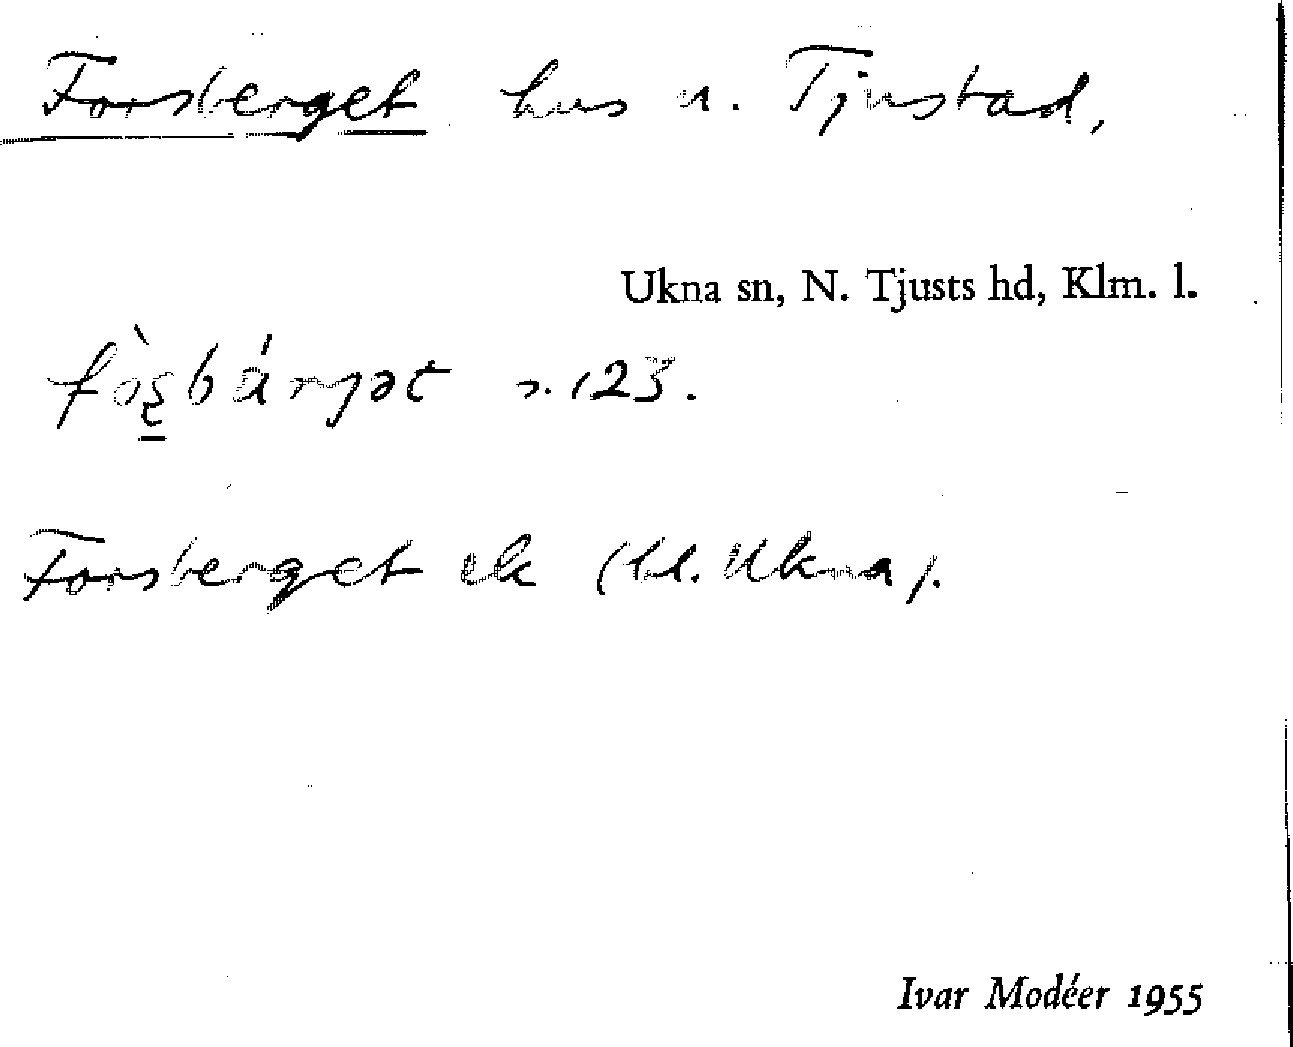 Forsberget hus u. Tjustad,
Ukna sn, N. Tjusts hd, Klm. l.
s. 123.
Forsberget ek (bl. Ukna).
Ivar Modéer 1955